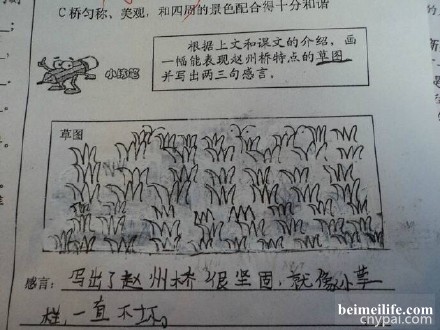 C桥匀称、美观，和四周的景色配合得十分和谐
根据上文和课文的介绍，画
一幅能表现赵州桥特点的草图
并写出两三句感言。
小练笔
草图
感言：写出了赵州桥很坚固，就像小草
一样，一直不坏。
beimeilife.com
cnypai.com